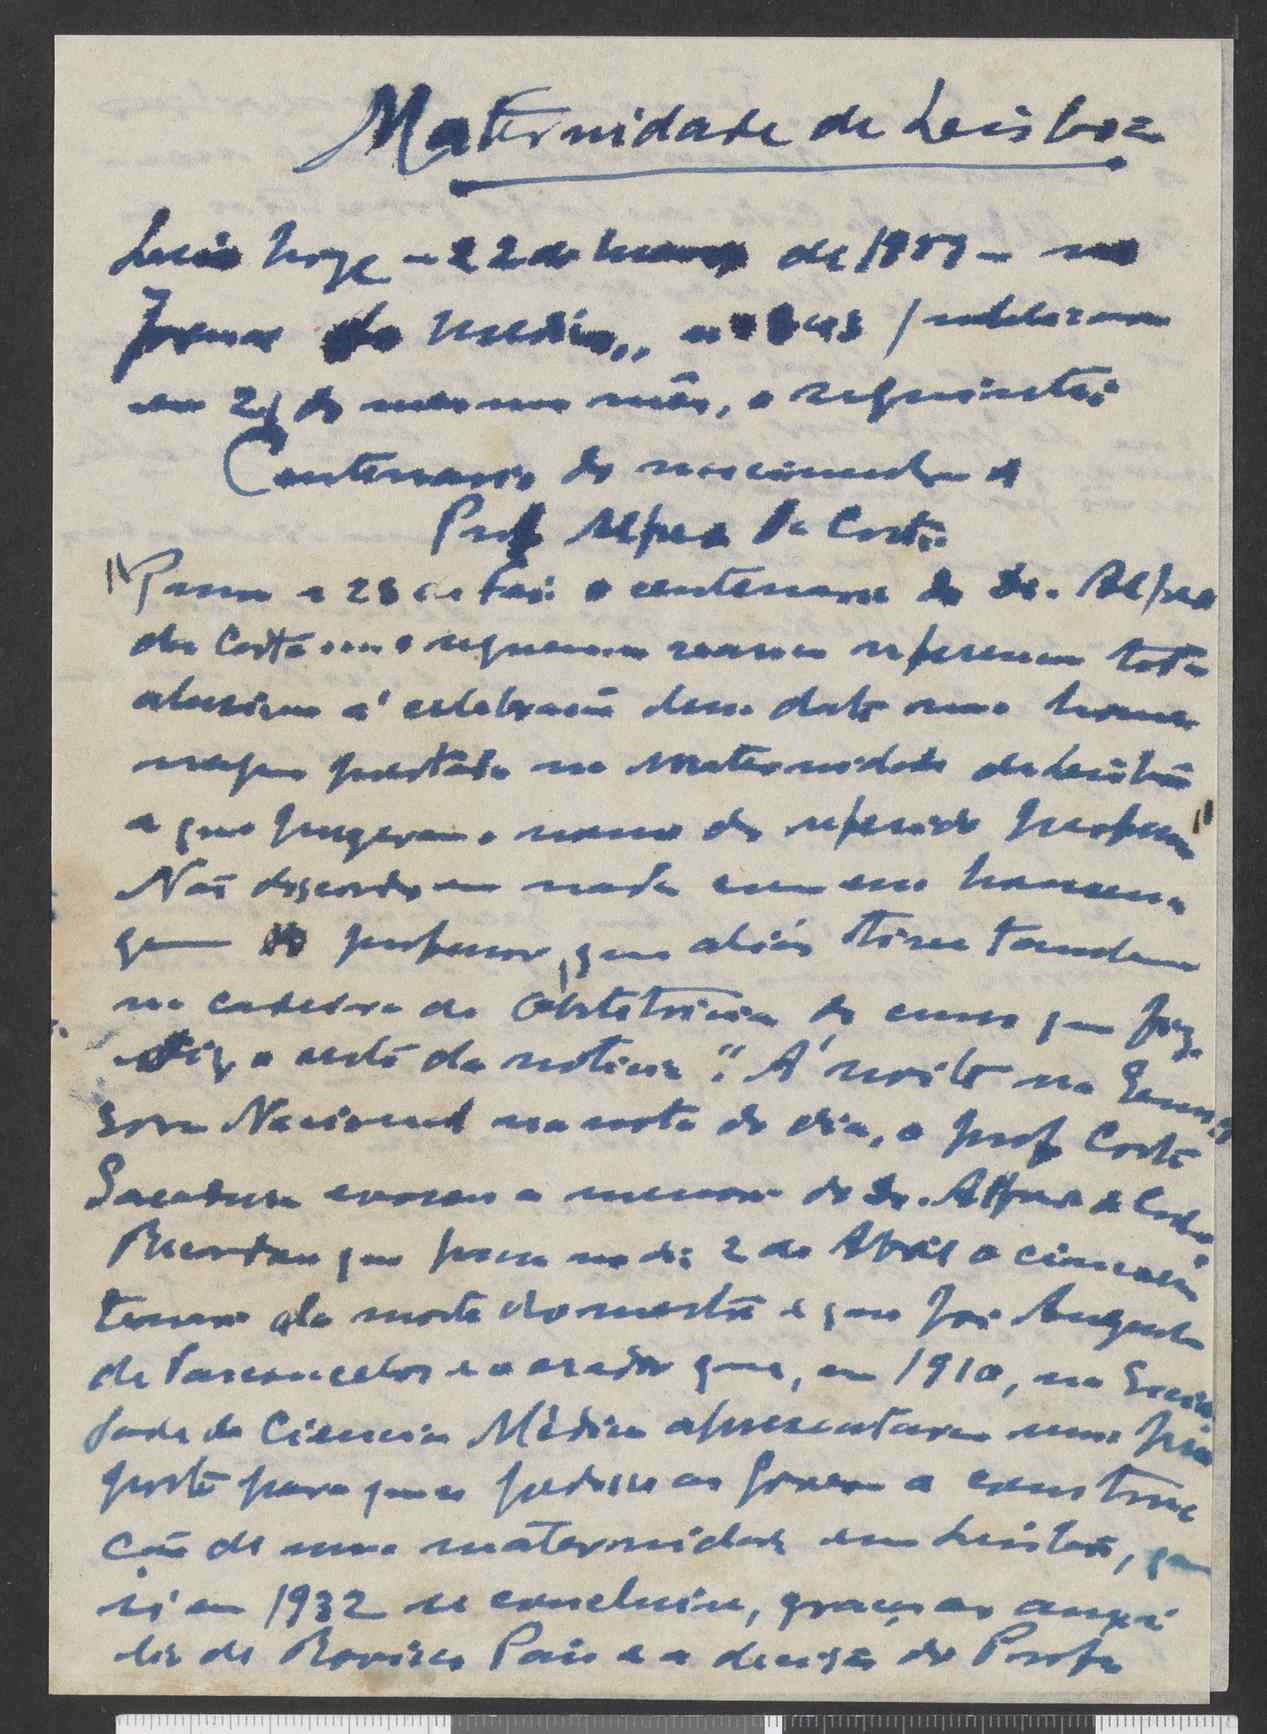 Maternidade de Lisboa
hoje - 22 de Março de 1959 - no
Jornal do Médico,,
em 21 do mesmo mês, o seguinte:
Centenario do nascimento d
Prof Alfredo da Costa
"Passa a 28 o centenario do Dr. Alfredo
da Costa
á celebração dessa data uma home
nagem prestada na Maternidade de Lisboa
a que puzeram o nome do referido Professor"
Não discordo em nada com essa homena
gem professor, que aliás tive tambem
na cadeira de Obstetricia do curso que fiz.
diz o resto da noticia: "Á noite na Emis
sora Nacional na nota do dia, o prof Costa
Sacadura evocou a memoria do Dr. Alfredo da Costa.
Recordou que passa no dia 2 de Abril o cincoen
tenario da morte do mestre e que foi Augusto
de Vasconcelos e o orador que, em 1910, na Socie
dade de Ciencias Médicas apresentaram uma pro
posta para que se pedisse ao Governo a constru
cão de uma maternidade em Lisboa, que
só em 1932 se concluiu, graças ao auxi
lio de Rovisco Pais e a decisão do Prof.